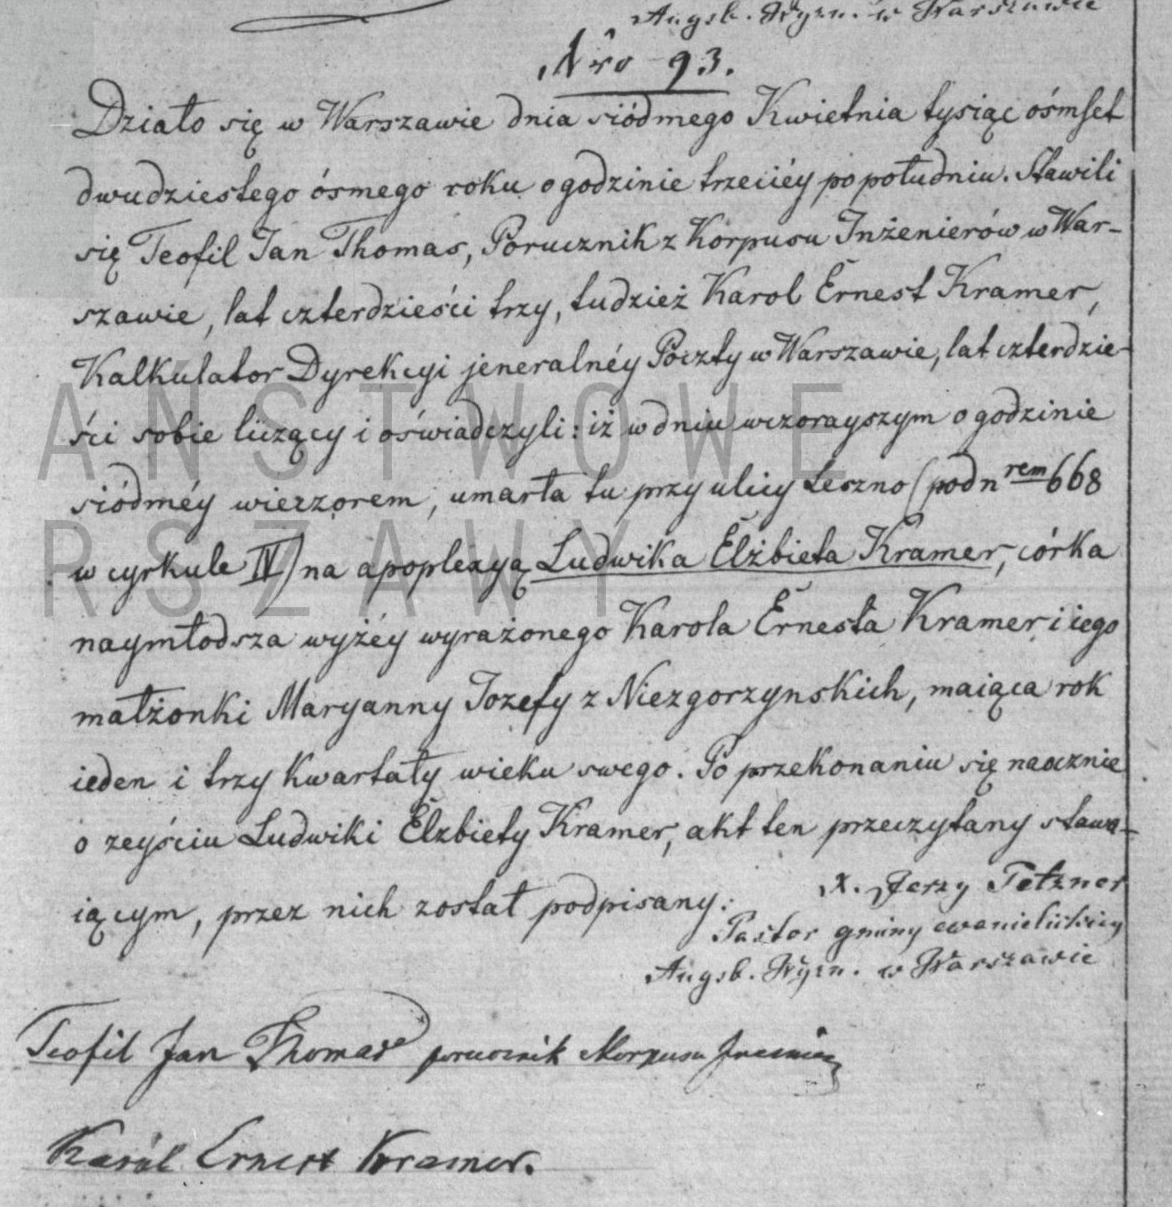 Augsb. Wyzn. w Warszawie
Nro 93.
Działo się w Warszawie dnia siódmego Kwietnia tysiąc ośmset
dwudziestego ósmego roku o godzinie trzeciéy po południu. Stawili
się Teofil Jan Thomas, Porucznik z Korpusu Inżenierów w War-
szawie, lat czterdzieści trzy, tudzież Karol Ernest Kramer,
Kalkulator Dyrekcyi jeneralnéy Poczty w Warszawie, lat czterdzie-
ści sobie liczący i oświadczyli: iż w dniu wczorayszym o godzinie
siódméy wieczorem, umarła tu przy ulicy Leszno (pod nrem 668
w cyrkule IV) na apoplexyą Ludwika Elżbieta Kramer, córka
naymłodsza wyżéy wyrażonego Karola Ernesta Kramer i iego
małżonki Maryanny Jozefy z Niezgorzynskich, maiąca rok
ieden i trzy kwartały wieku swego. Po przekonaniu się naocznie
o zeyściu Ludwiki Elzbiety Kramer, akt ten przeczytany stawa-
iącym, przez nich został podpisany:
X. Jerzy Tetzner
Pastor gminy ewanielickiey
Augsb. Wyzn. w Warszawie
Teofil Jan Thomas porucznik Korpusu
Karól Ernest Kramer.
AŃSTWOWE
RSZAWY